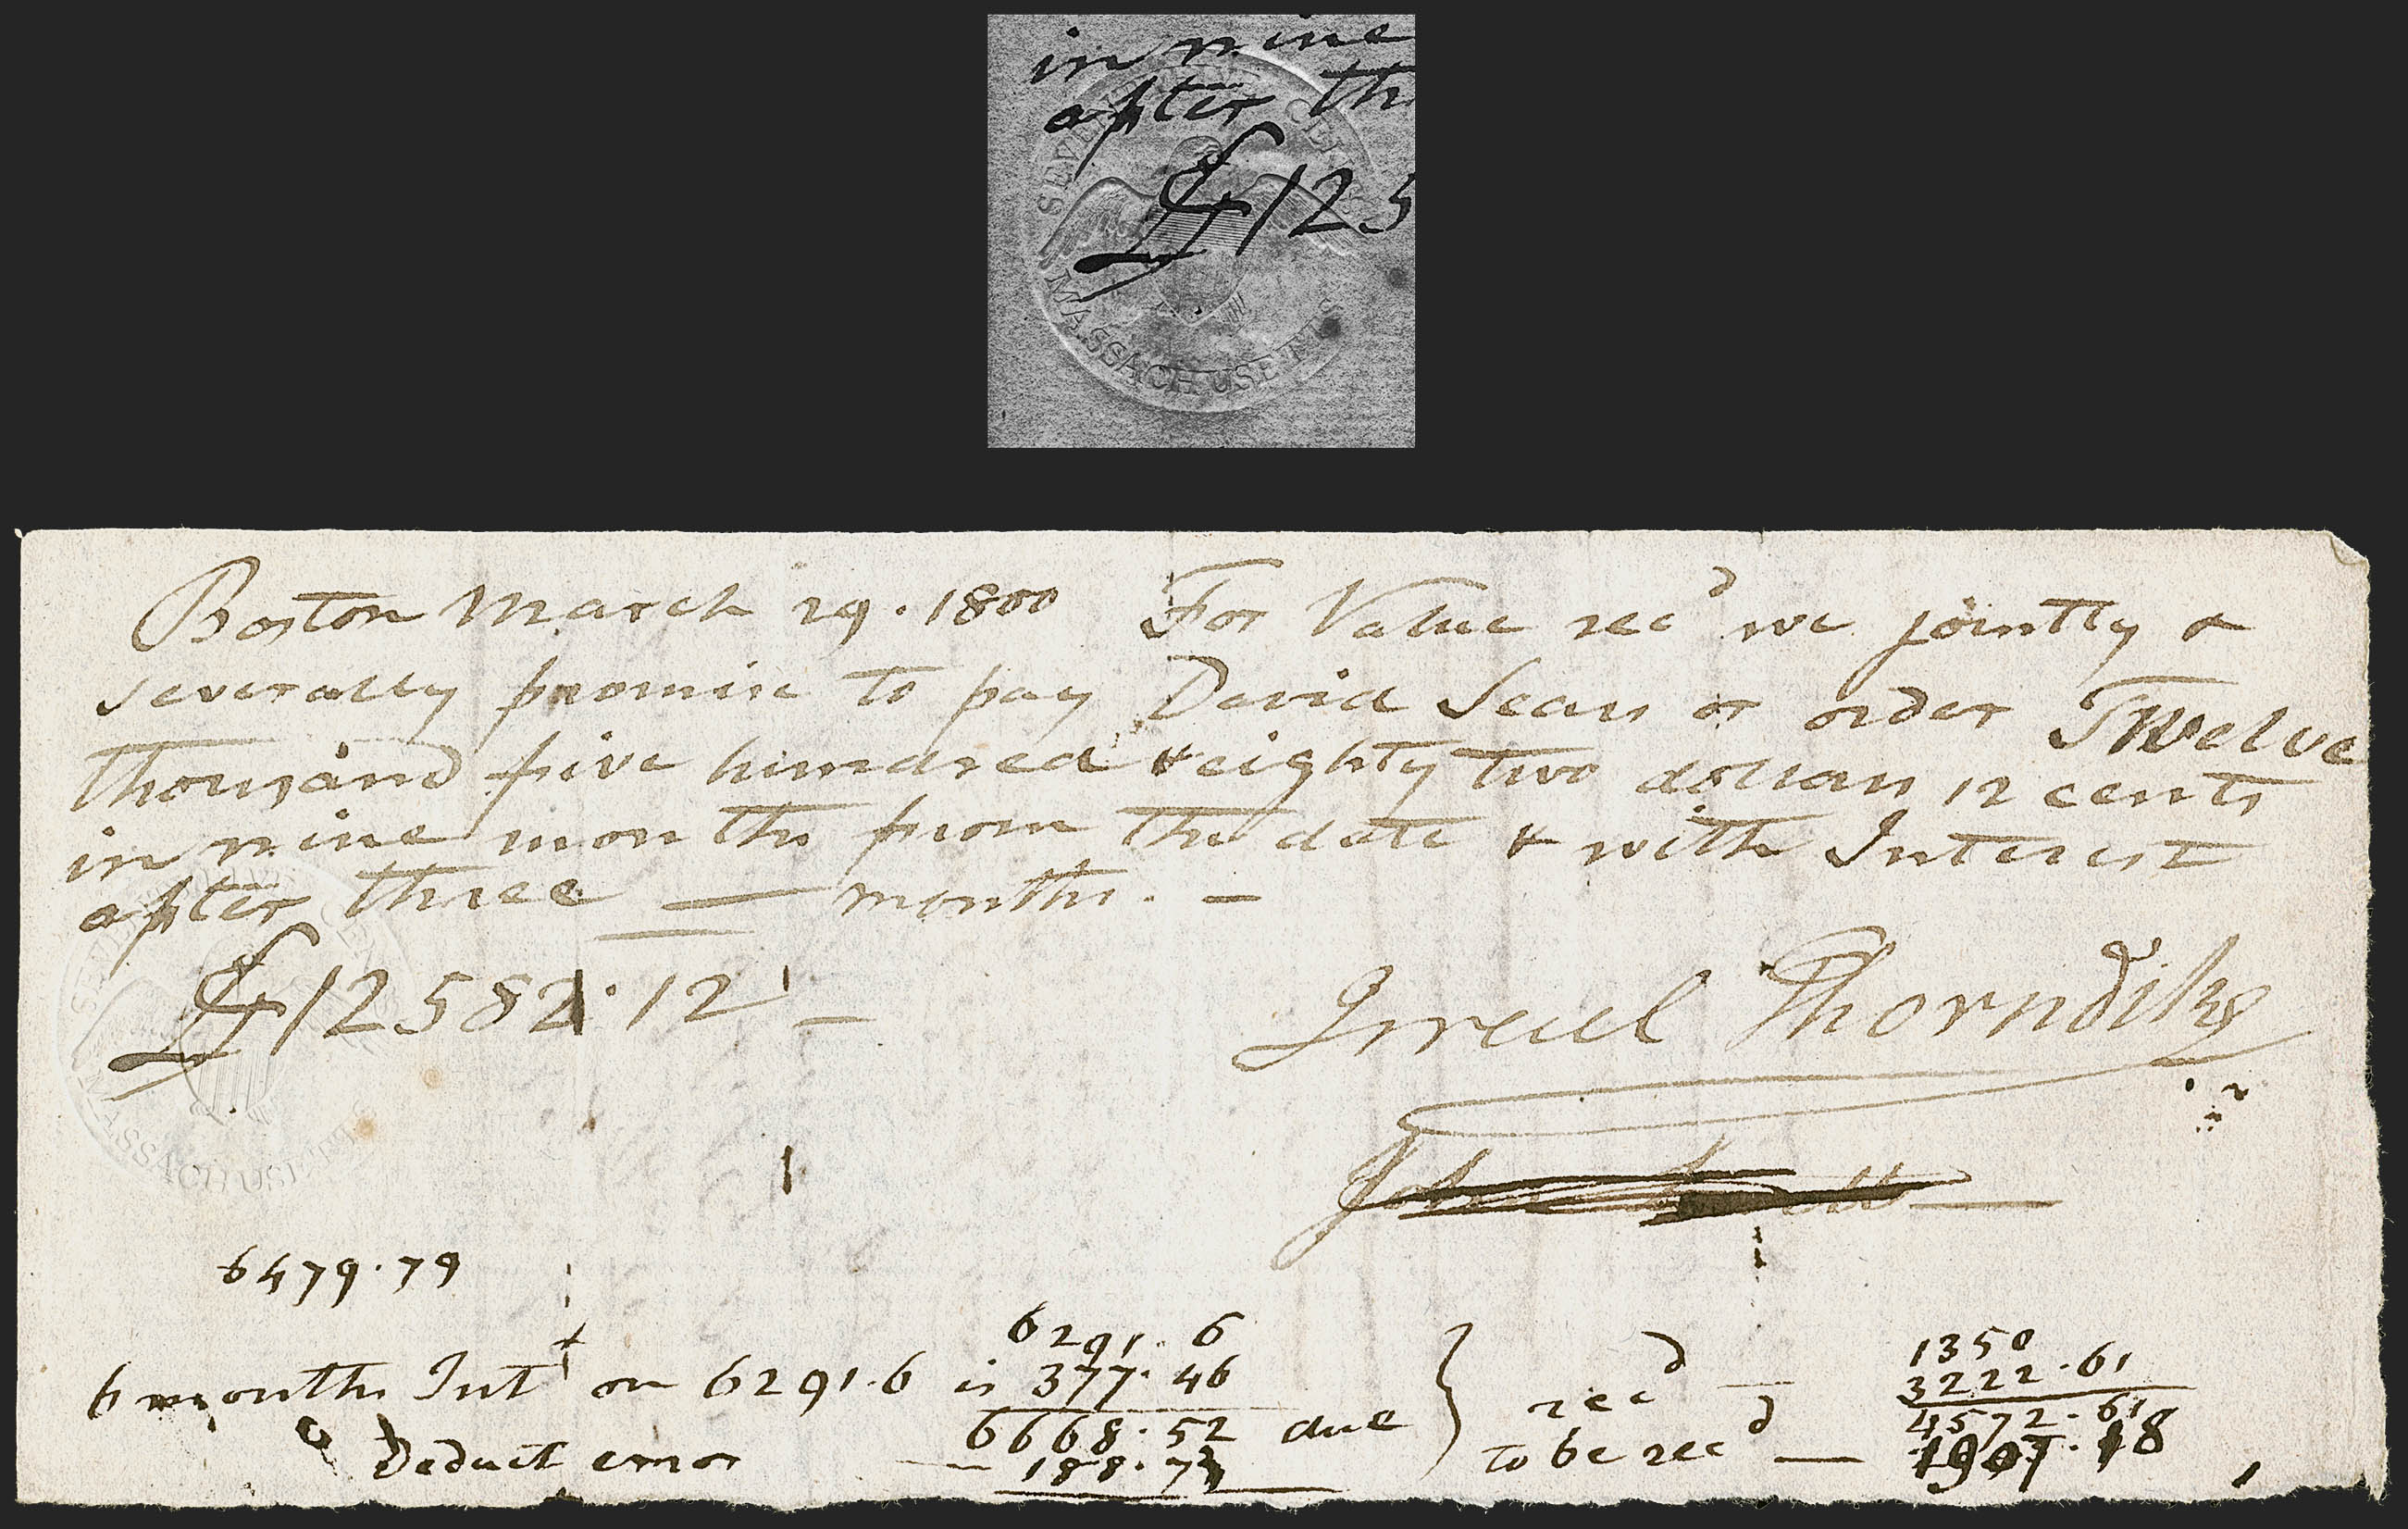 in nine
after th
$125
SEVENTY FIVE CENTS
MASSACHUSETTS
Boston March 29. 1800 For Value recd we jointly &
severally promise to pay David Sears or order Twelve
thousand five hundred & eighty two dollars 12 cents
in nine months from the date & with Interest
after three — months. —
$12582.12 —
MASSACHUSETTS
Israel Thorndike
John
6479.79
6 months Intt on 6291.6 is
6291.6
377.46
6668.52 due
Deduct error — 188.73
recd —
1350
3222.61
4572.61
to be recd — 1907.18